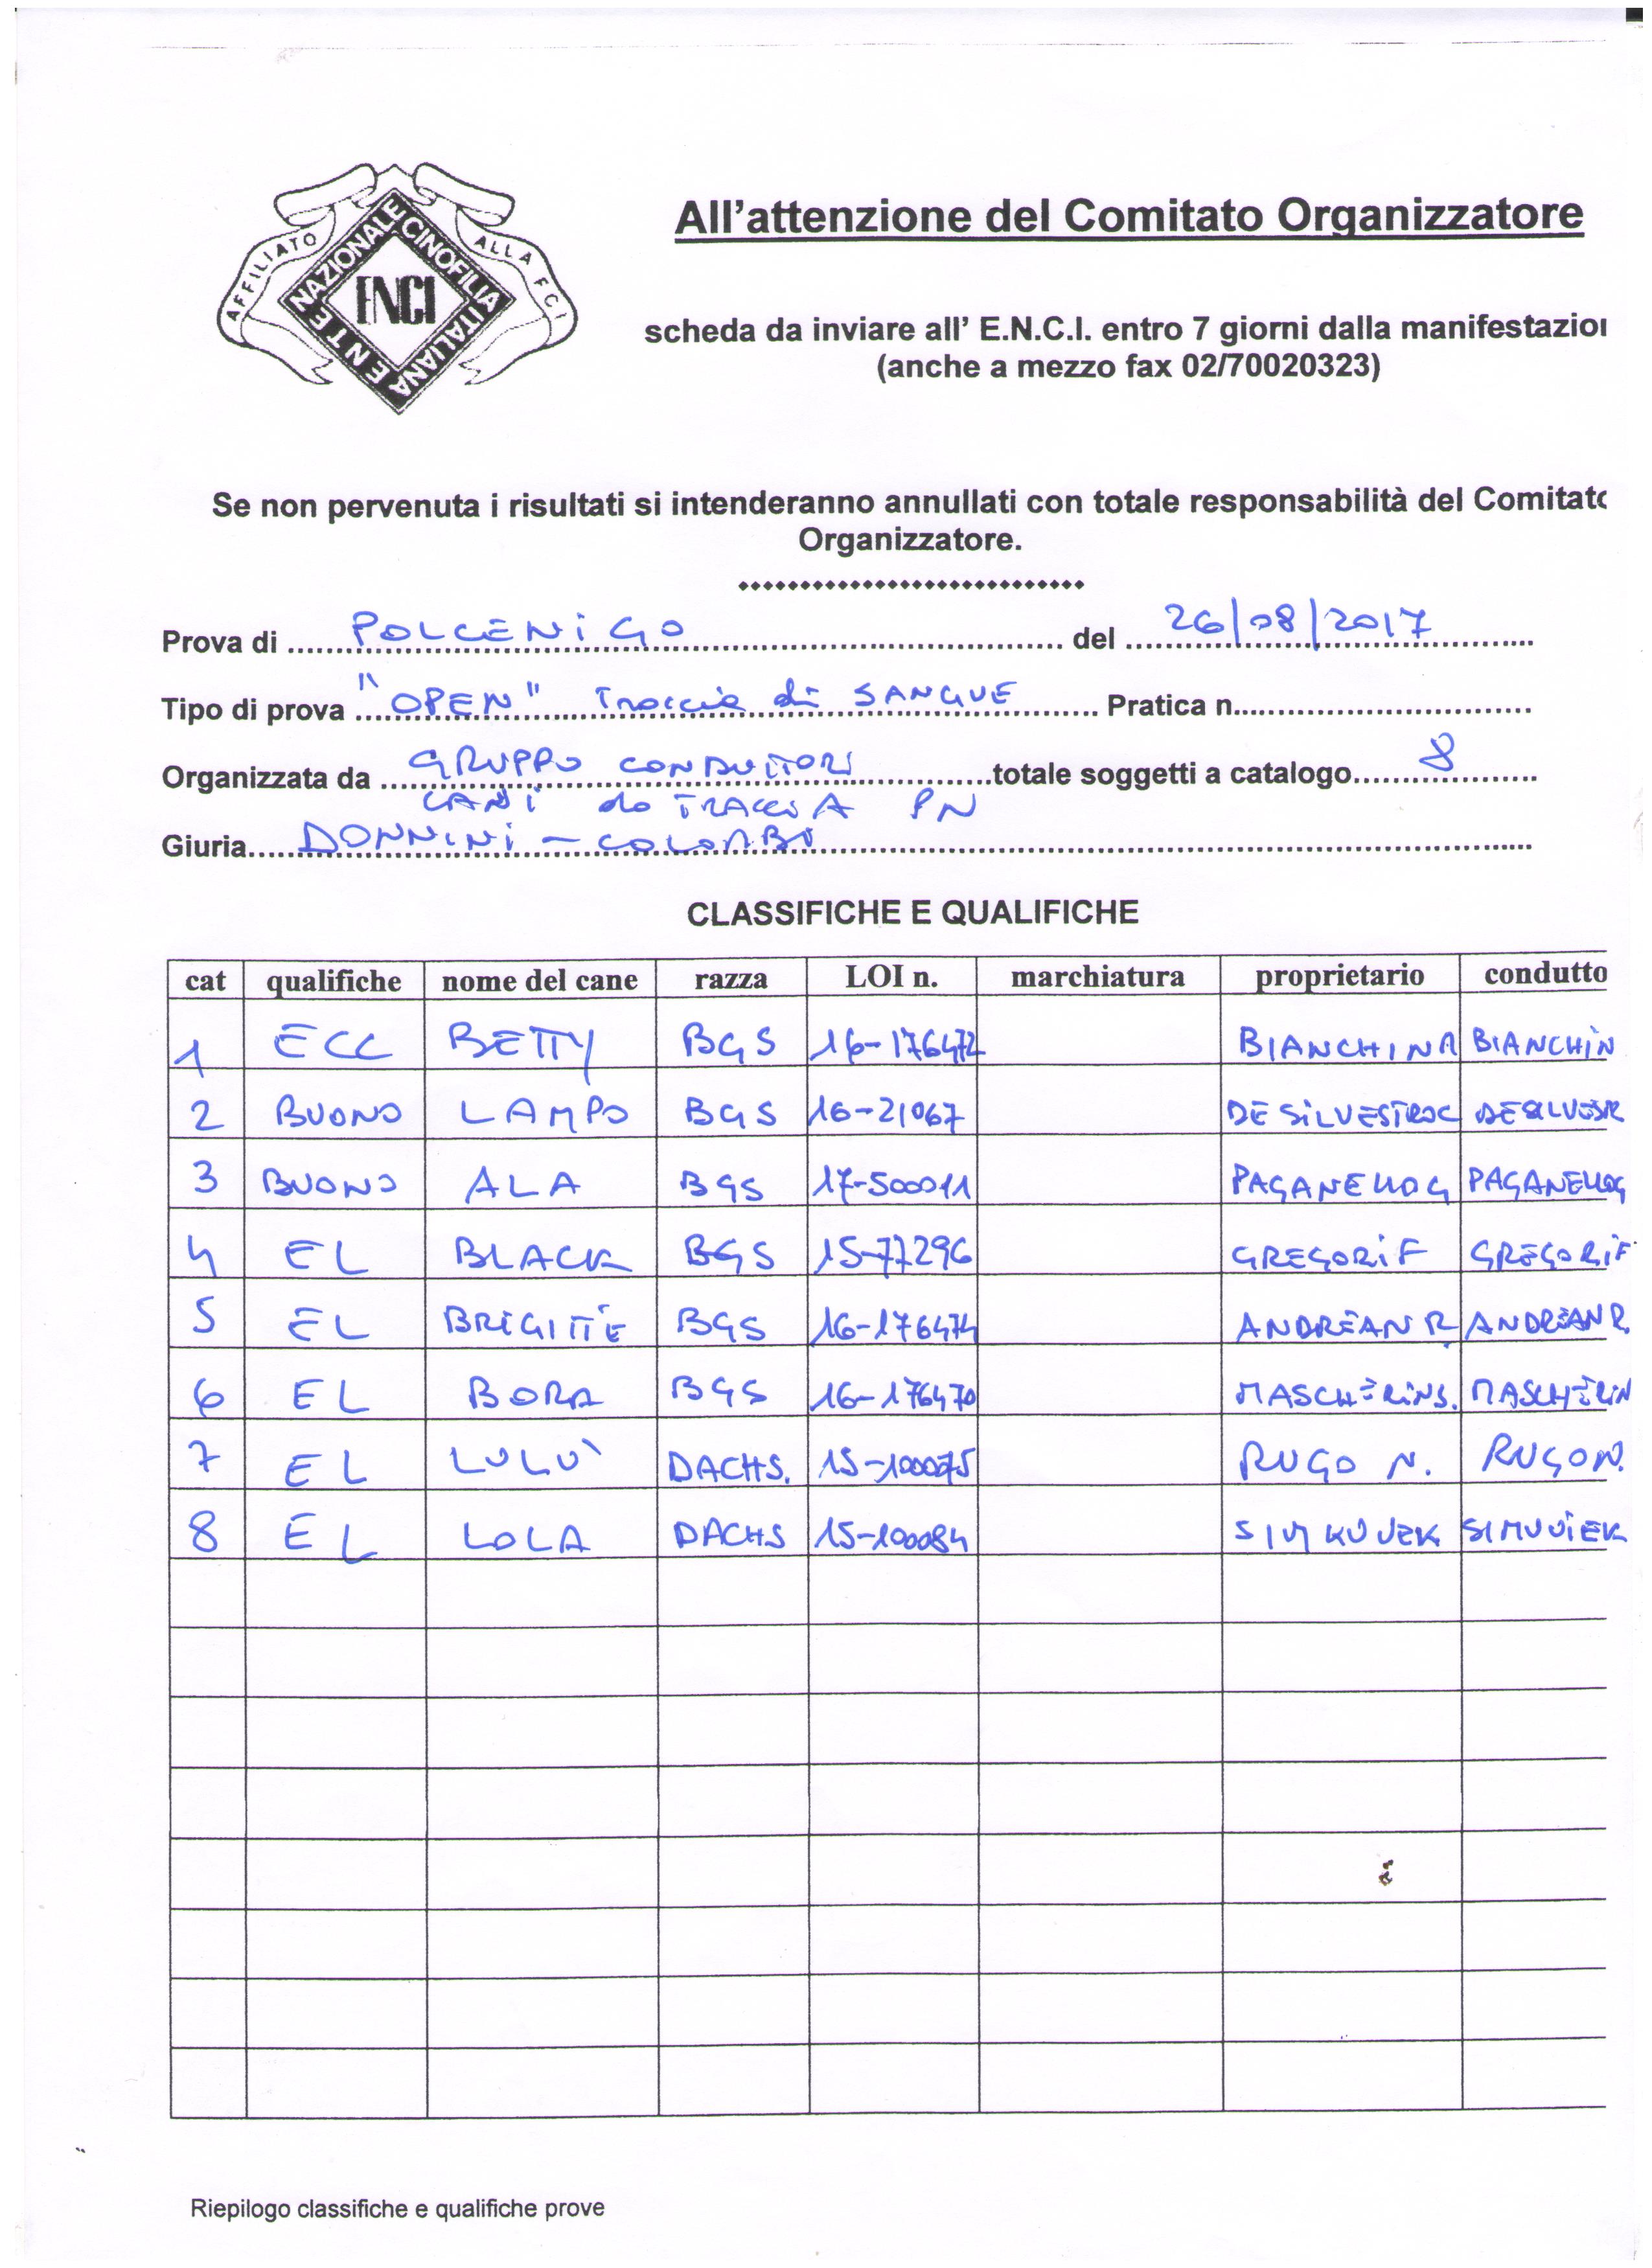 AFFILIATO ALLA FCI
ENTE NAZIONALE CINOFILIA ITALIANA
ENCI
All'attenzione del Comitato Organizzatore
scheda da inviare all' E.N.C.I. entro 7 giorni dalla manifestazion
(anche a mezzo fax 02/70020323)
Se non pervenuta i risultati si intenderanno annullati con totale responsabilità del Comitato
Organizzatore.
Prova di POLCENIGO del 26/08/2017
Tipo di prova "OPEN" Traccia di SANGUE Pratica n.
Organizzata da GRUPPO CONDUTTORI totale soggetti a catalogo 8
CANI da TRACCIA PN
Giuria DONNINI - COLOMBO
CLASSIFICHE E QUALIFICHE
cat qualifiche nome del cane razza LOI n. marchiatura proprietario condutto
1 ECC BETTY BGS 16-176472 BIANCHIN A BIANCHIN
2 BUONO LAMPO BGS 16-21067 DE SILVESTRO C
3 BUONO ALA BGS 17-500011 PAGANELLO G PAGANELLO G
4 EL BLACK BGS 15-77296 GREGORI F GREGORI F
5 EL BRIGITTE BGS 16-176474 ANDREAN R. ANDREAN R.
6 EL BORA BGS 16-176470 MASCHERIN S. MASCHERIN
7 EL LULU' DACHS. 15-100075 RUGO N. RUGO N.
8 EL LOLA DACHS 15-100084
Riepilogo classifiche e qualifiche prove